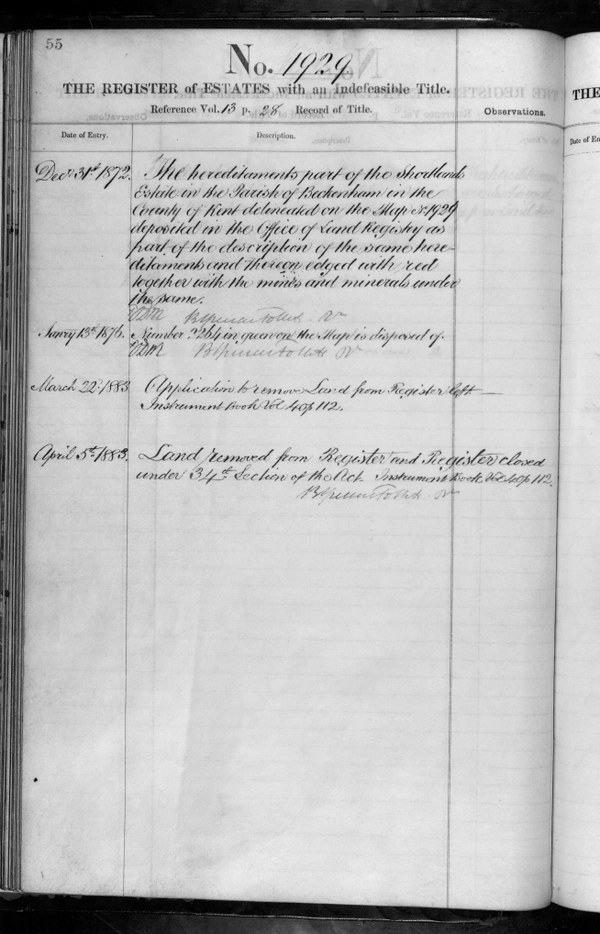 55
No. 1929
THE REGISTER of ESTATES with an Indefeasible Title.
Reference Vol. 13 p. 28 Record of Title.
Observations.
Date of Entry.
Description.
Decr 31st 1872.
The hereditaments part of the Shortlands
Estate in the Parish of Beckenham in the
County of Kent delineated on the Map No 1929
deposited in the Office of Land Registry as
part of the description of the same here-
ditaments and thereon edged with red
together with the mines and minerals under
the same.
Janry 13th 1876.
Number 2264 in green on the Map is disposed of.
March 22. 1883
Application to remove Land from Register left —
Instrument Book Vol 40 p 112.
April 5th 1883.
Land removed from Register and Register closed
under 34th Section of the Act. Instrument Book Vol 40 p 112.
THE
Date of En